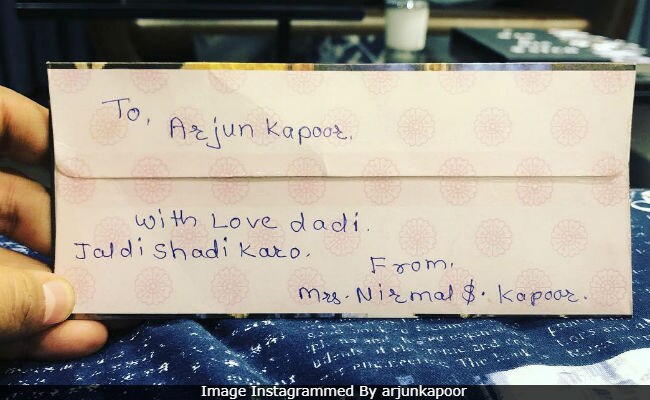 To,
Arjun Kapoor.
with Love dadi.
Jaldi Shadi Karo.
From,
Mrs. Nirmal S. Kapoor.
Image Instagrammed By arjunkapoor